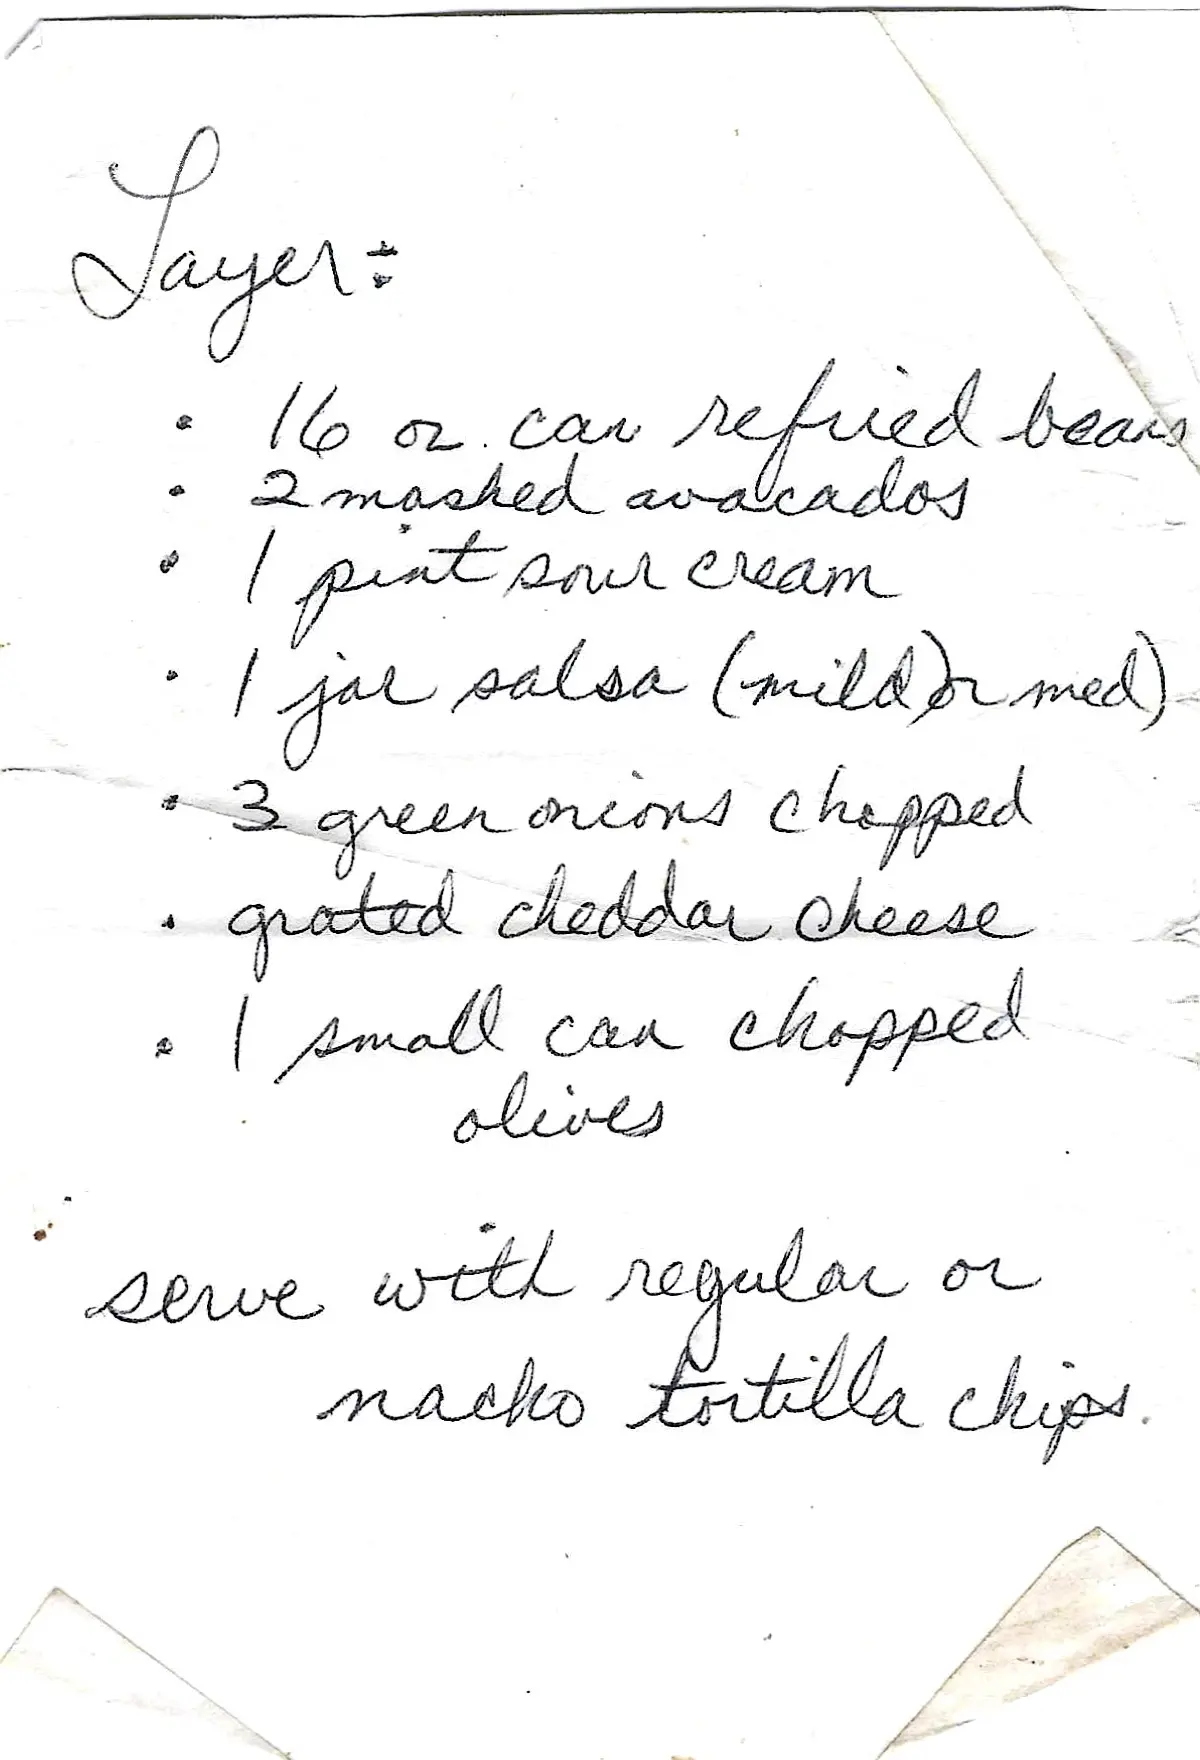 Layer:
• 16 oz. can refried beans
• 2 mashed avacados
• 1 pint sour cream
• 1 jar salsa (mild) or med)
• 3 green onions chopped
• grated cheddar cheese
• 1 small can chopped
olives
serve with regular or
nacho tortilla chips.